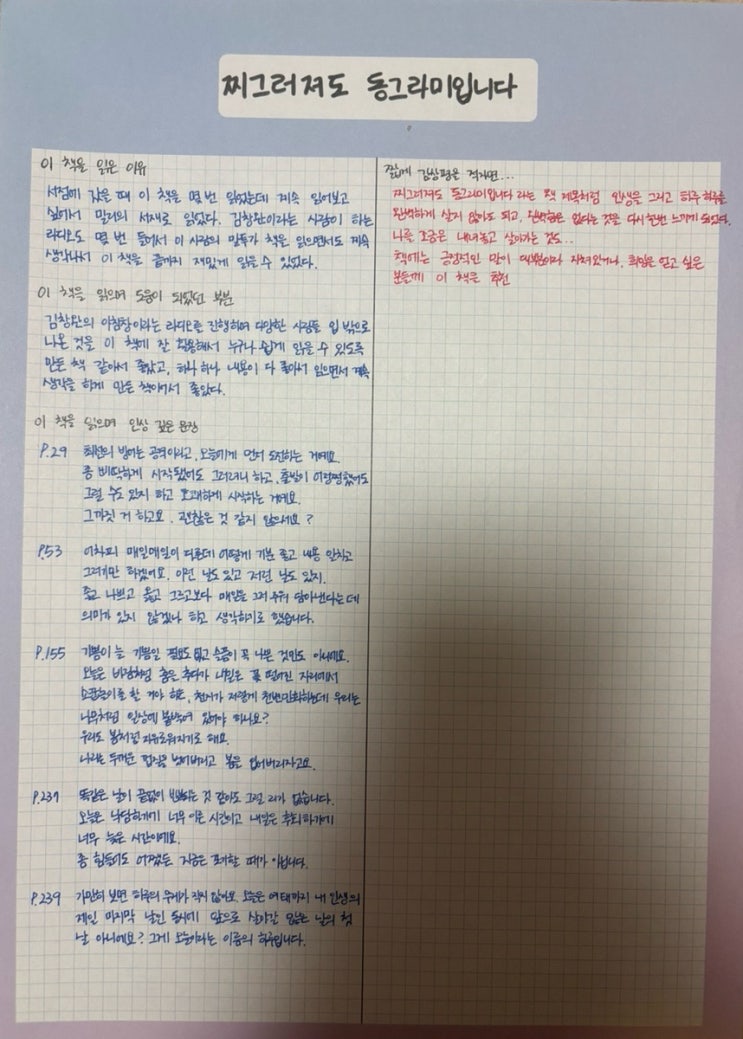 찌그러져도 동그라미입니다
이 책을 읽은 이유
서점에 갔을 때 이 책을 몇 번 읽었는데 계속 읽어보고
싶어서 밀리의 서재로 읽었다. 김창완이라는 사람이 하는
라디오도 몇 번 들어서 이 사람의 말투가 책을 읽으면서도 계속
생각나서 이 책을 끝까지 재밌게 읽을 수 있었다.
이 책을 읽으며 도움이 되었던 부분
김창완의 아침창이라는 라디오를 진행하며 다양한 사람들 입 밖으로
나온 것을 이 책에 잘 활용해서 누구나 쉽게 읽을 수 있도록
만든 책 같아서 좋았고, 하나 하나 내용이 다 좋아서 읽으면서 계속
생각을 하게 만든 책이여서 좋았다.
이 책을 읽으며 인상 깊은 문장
P.29 최선의 방어는 공격이라고, 오늘에게 먼저 도전하는 거예요.
좀 삐딱하게 시작됐어도 그러려니 하고, 출발이 어떻했어도
그럴 수도 있지 하고 호쾌하게 시작하는 거예요.
그까짓 거 하고요. 괜찮은 것 같지 않으세요?
P.53 어차피 매일매일이 다른데 어떻게 기분 좋고 내용 알차고
그러기만 하겠어요. 이런 날도 있고 저런 날도 있지.
좋고 나쁘고 옳고 그르고보다 매일을 그려 담아낸다는 데
의미가 있지 않겠나 하고 생각하기로 했습니다.
P.155 기쁨이 늘 기쁨일 필요도 없고 슬픔이 꼭 나쁜 것만도 아니에요.
오늘은 바람처럼 춤을 추다가 내일은 꽃 떨어진 자리에서
소꿉놀이를 할 거야 하는, 천지가 저렇게 천변만화하는데 우리는
나무처럼 일상에 붙박여 있어야 하나요?
우리도 봄처럼 자유로워지기로 해요.
나라는 두꺼운 껍질을 벗어버리고 봄을 입어버리자고요.
P.239 똑같은 날이 끝없이 반복되는 것 같아도 그럴 리가 없습니다.
오늘은 낙담하기에 너무 이른 시간이고 내일은 후회하기에
너무 늦은 시간이에요.
좀 힘들어도 어쨌든 지금은 포기할 때가 아닙니다.
P.239 가만히 보면 하루의 무게가 적지 않아요. 오늘은 여태까지 내 인생의
제일 마지막 날인 동시에 앞으로 살아갈 많은 날의 첫
날 아니에요? 그게 오늘이라는 이름의 하루입니다.
짧게 감상평을 적자면...
찌그러져도 동그라미입니다 라는 책 제목처럼 인생을 그리고 하루 하루를
완벽하게 살지 않아도 되고, 완벽함은 없다는 것을 다시 한번 느끼게 되었다.
나를 조금은 내려놓고 살아가는 것도...
책에는 긍정적인 말이 대부분이라 지쳐있거나, 희망을 얻고 싶은
분들께 이 책을 추천